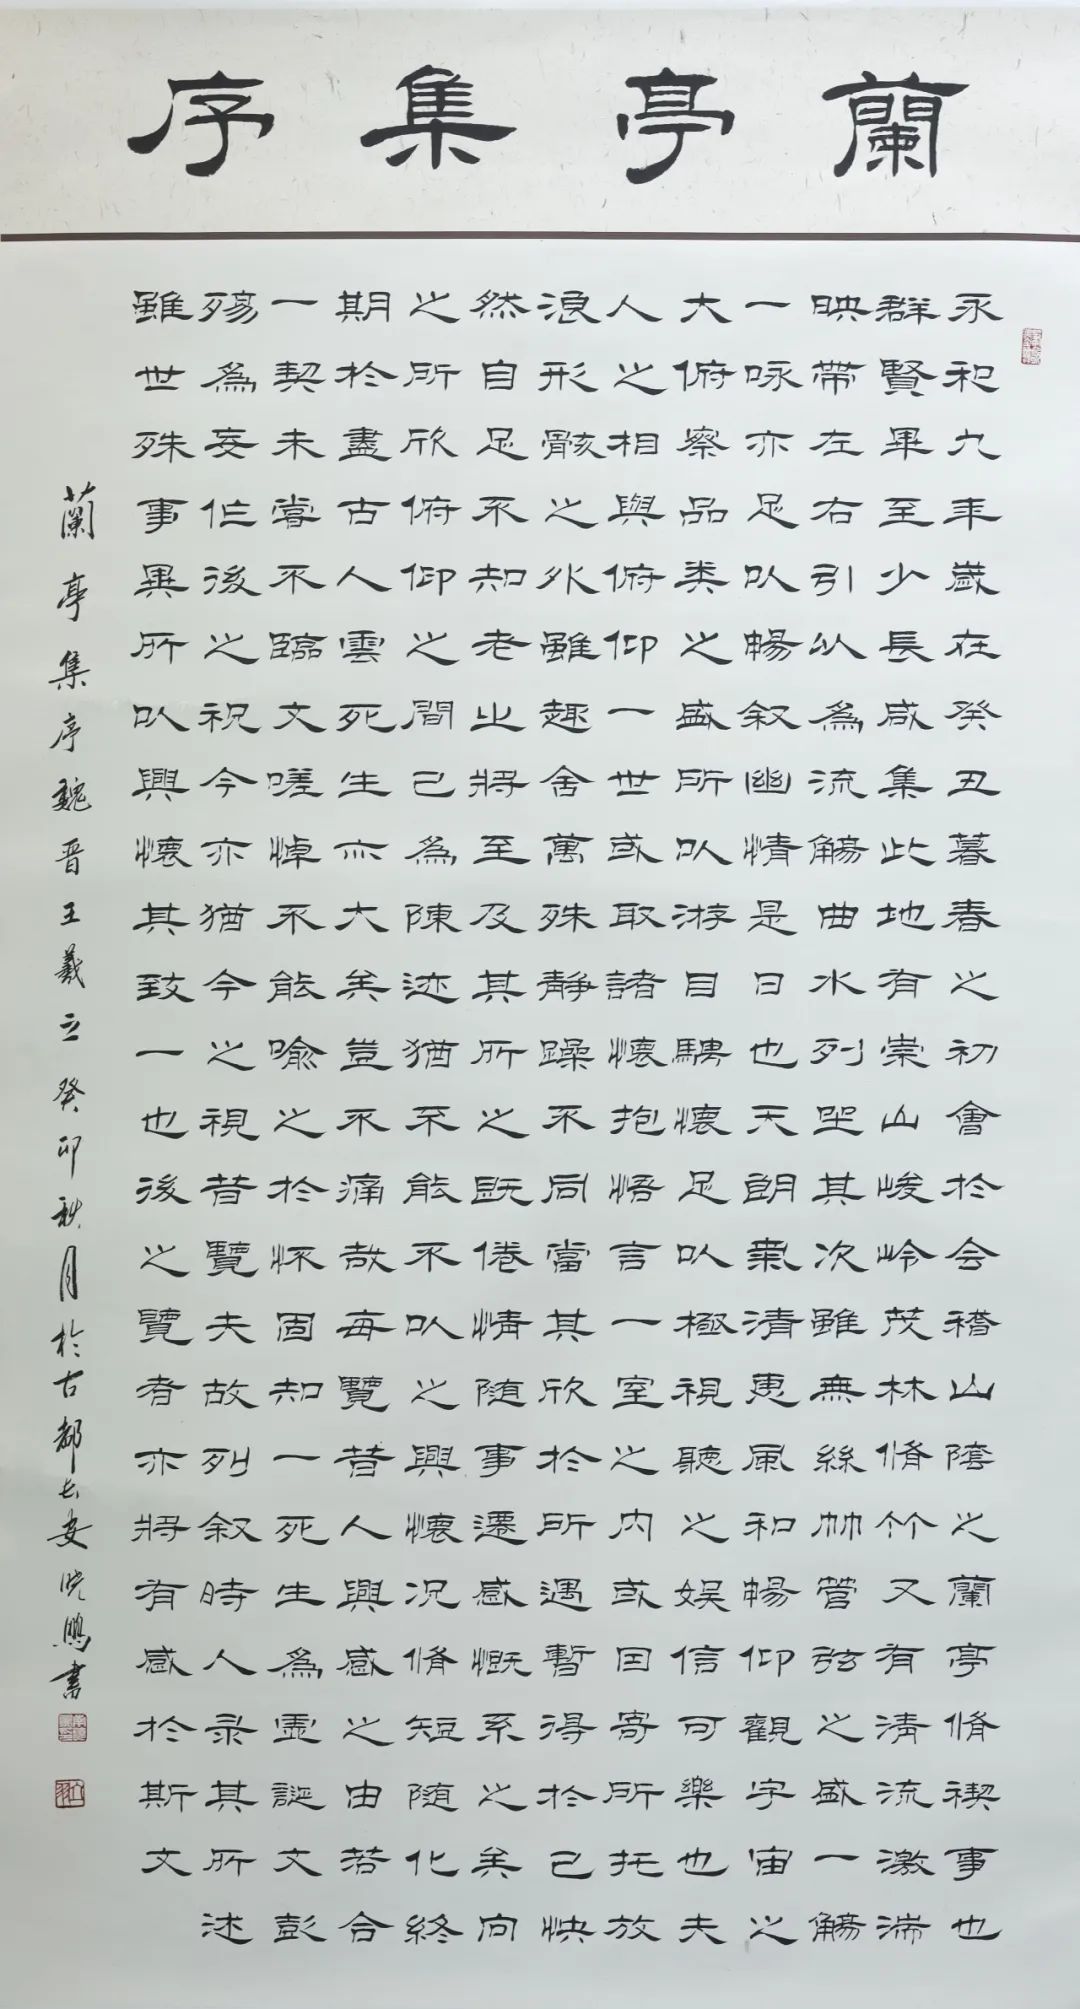 蘭亭集序
永和九年歲在癸丑暮春之初會於会稽山陰之蘭亭脩禊事也
群賢畢至少長咸集此地有崇山峻岭茂林脩竹又有清流激湍
映帶左右引以為流觴曲水列坐其次雖無絲竹管弦之盛一觴
一咏亦足以暢叙幽情是日也天朗氣清惠風和暢仰觀宇宙之
大俯察品类之盛所以游目騁懷足以極視聽之娛信可樂也夫
人之相與俯仰一世或取諸懷抱悟言一室之内或因寄所托放
浪形骸之外雖趣舍萬殊静躁不同當其欣於所遇暫得於己快
然自足不知老之將至及其所之既倦情随事遷感慨系之矣向
之所欣俯仰之間已為陳迹猶不能不以之興懷况脩短随化終
期於盡古人雲死生亦大矣豈不痛哉每覽昔人興感之由若合
一契未嘗不臨文嗟悼不能喻之於怀固知一死生為虛誕文彭
殤為妄作後之祝今亦猶今之視昔覽夫故列叙時人录其所述
雖世殊事異所以興懷其致一也後之覽者亦將有感於斯文
蘭亭集序魏晋王羲之癸卯秋月於古都长安晓鵬書